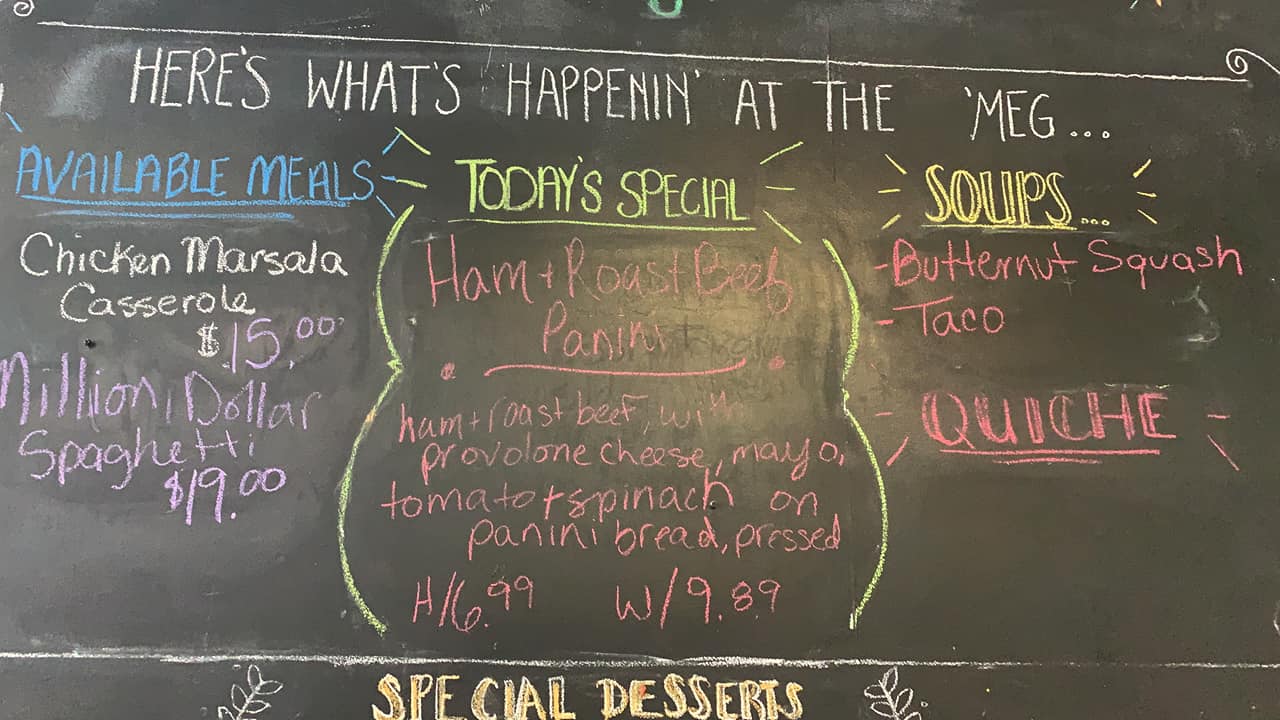 HERE'S WHAT'S HAPPENIN' AT THE 'MEG...
AVAILABLE MEALS
Chicken Marsala
Casserole
$15.00
Million Dollar
Spaghetti
$19.00
TODAY'S SPECIAL
Ham + Roast Beef
Panini
ham + roast beef, with
provolone cheese, mayo,
tomato + spinach on
panini bread, pressed
H/6.99 W/9.89
SOUPS...
- Butternut Squash
- Taco
QUICHE
SPECIAL DESSERTS